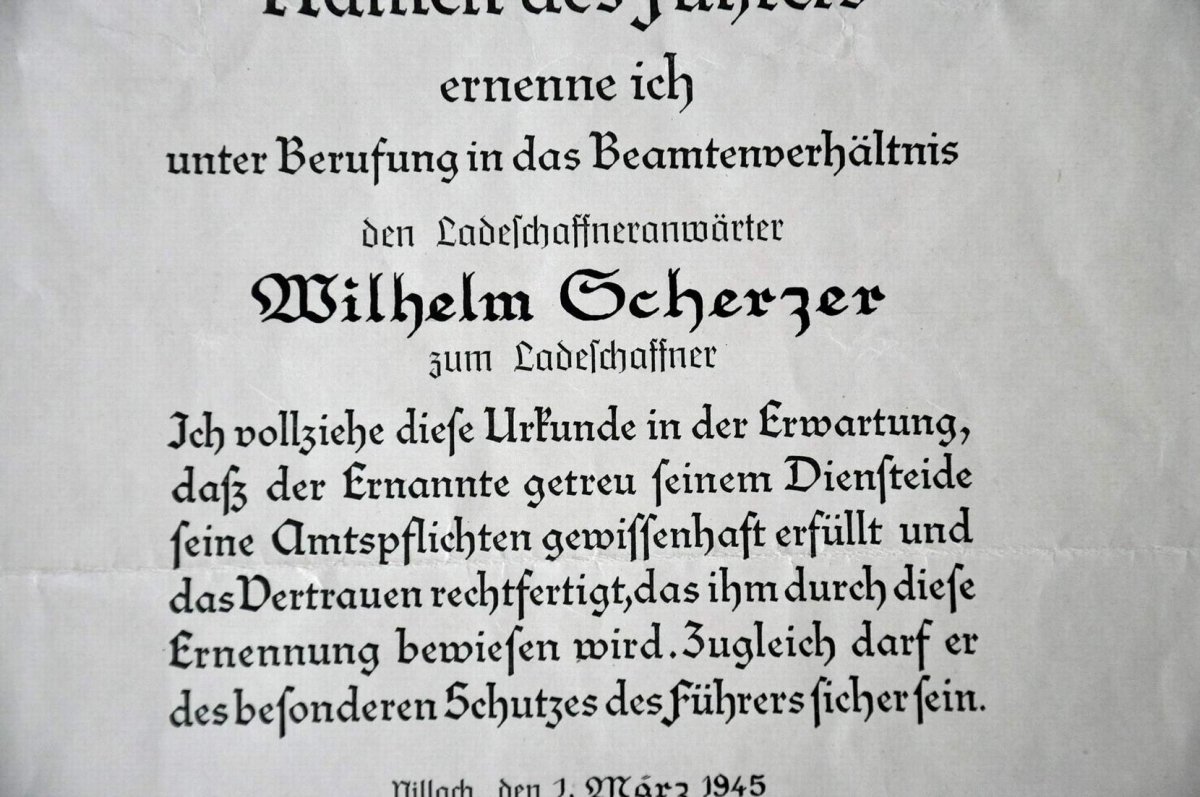 Namen des Führers
ernenne ich
unter Berufung in das Beamtenverhältnis
den Ladeſchaffneranwärter
Wilhelm Scherzer
zum Ladeſchaffner
Ich vollziehe dieſe Urkunde in der Erwartung,
daſz der Ernannte getreu ſeinem Dienſteide
ſeine Amtspflichten gewiſſenhaft erfüllt und
das Vertrauen rechtfertigt, das ihm durch dieſe
Ernennung bewieſen wird. Zugleich darf er
des beſonderen Schutzes des Führers ſicher ſein.
Villach, den 1. März 1945